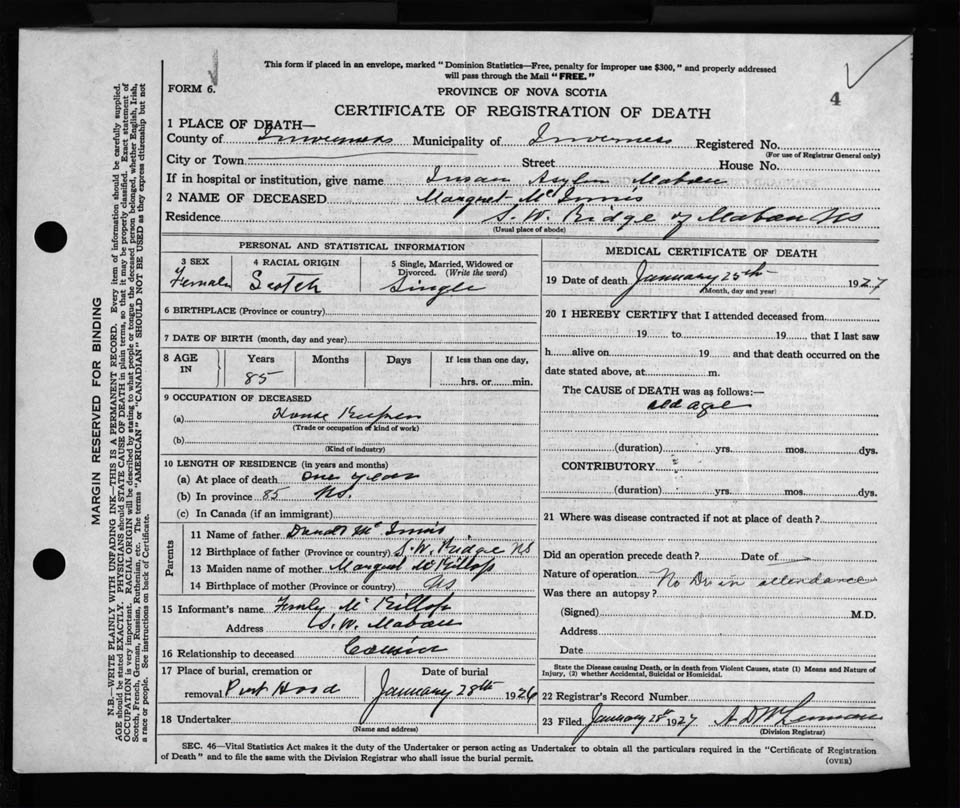 This form if placed in an envelope, marked “Dominion Statistics—Free, penalty for improper use $300,” and properly addressed
will pass through the Mail “FREE.”
FORM 6.
PROVINCE OF NOVA SCOTIA
4
CERTIFICATE OF REGISTRATION OF DEATH
1 PLACE OF DEATH—
County of Inverness Municipality of Inverness Registered No.
(For use of Registrar General only)
City or Town Street House No.
If in hospital or institution, give name Insan Asylum Mabou
2 NAME OF DECEASED Margret McInnis
Residence S. W. Ridge of Mabou NS
(Usual place of abode)
PERSONAL AND STATISTICAL INFORMATION
3 SEX 4 RACIAL ORIGIN 5 Single, Married, Widowed or
Divorced. (Write the word)
Female Scotch Single
6 BIRTHPLACE (Province or country)
7 DATE OF BIRTH (month, day and year)
8 AGE
IN Years Months Days If less than one day,
85 hrs. or min.
9 OCCUPATION OF DECEASED
(a) House Keeper
(Trade or occupation of kind of work)
(b)
(Kind of industry)
10 LENGTH OF RESIDENCE (in years and months)
(a) At place of death one year
(b) In province 85 NS.
(c) In Canada (if an immigrant)
Parents
11 Name of father McInnis
12 Birthplace of father (Province or country) S. W. Ridge NS
13 Maiden name of mother Margret McKillop
14 Birthplace of mother (Province or country) NS
15 Informant's name McKillop
Address S. W. Mabou
16 Relationship to deceased Cousin
17 Place of burial, cremation or Date of burial
removal Port Hood January 28th 1926
18 Undertaker
(Name and address)
MEDICAL CERTIFICATE OF DEATH
19 Date of death January 25th 1927
(Month, day and year)
20 I HEREBY CERTIFY that I attended deceased from
19 to 19 that I last saw
h alive on 19 and that death occurred on the
date stated above, at m.
The CAUSE of DEATH was as follows:—
old age
(duration) yrs. mos. dys.
CONTRIBUTORY
(duration) yrs. mos. dys.
21 Where was disease contracted if not at place of death?
Did an operation precede death? Date of
Nature of operation No Dr in attendance
Was there an autopsy?
(Signed) M.D.
Address
Date
State the Disease causing Death, or in death from Violent Causes, state (1) Means and Nature of
Injury, (2) whether Accidental, Suicidal or Homicidal.
22 Registrar's Record Number
23 Filed January 28 1927 A D
(Division Registrar)
SEC. 46—Vital Statistics Act makes it the duty of the Undertaker or person acting as Undertaker to obtain all the particulars required in the “Certificate of Registration
of Death” and to file the same with the Division Registrar who shall issue the burial permit.
(OVER)
MARGIN RESERVED FOR BINDING
N.B.—WRITE PLAINLY WITH UNFADING INK—THIS IS A PERMANENT RECORD. Every item of information should be carefully supplied.
AGE should be stated EXACTLY. PHYSICIANS should STATE CAUSE OF DEATH in plain terms, so that it may be properly classified. Exact statement of
OCCUPATION is very important. RACIAL ORIGIN will be described by stating to what people or tongue the deceased person belonged, whether English, Irish,
Scotch, French, German, Russian, Ruthenian, etc. The terms “AMERICAN” or “CANADIAN” SHOULD NOT BE USED as they express citizenship but not
a race or people. See instructions on back of Certificate.